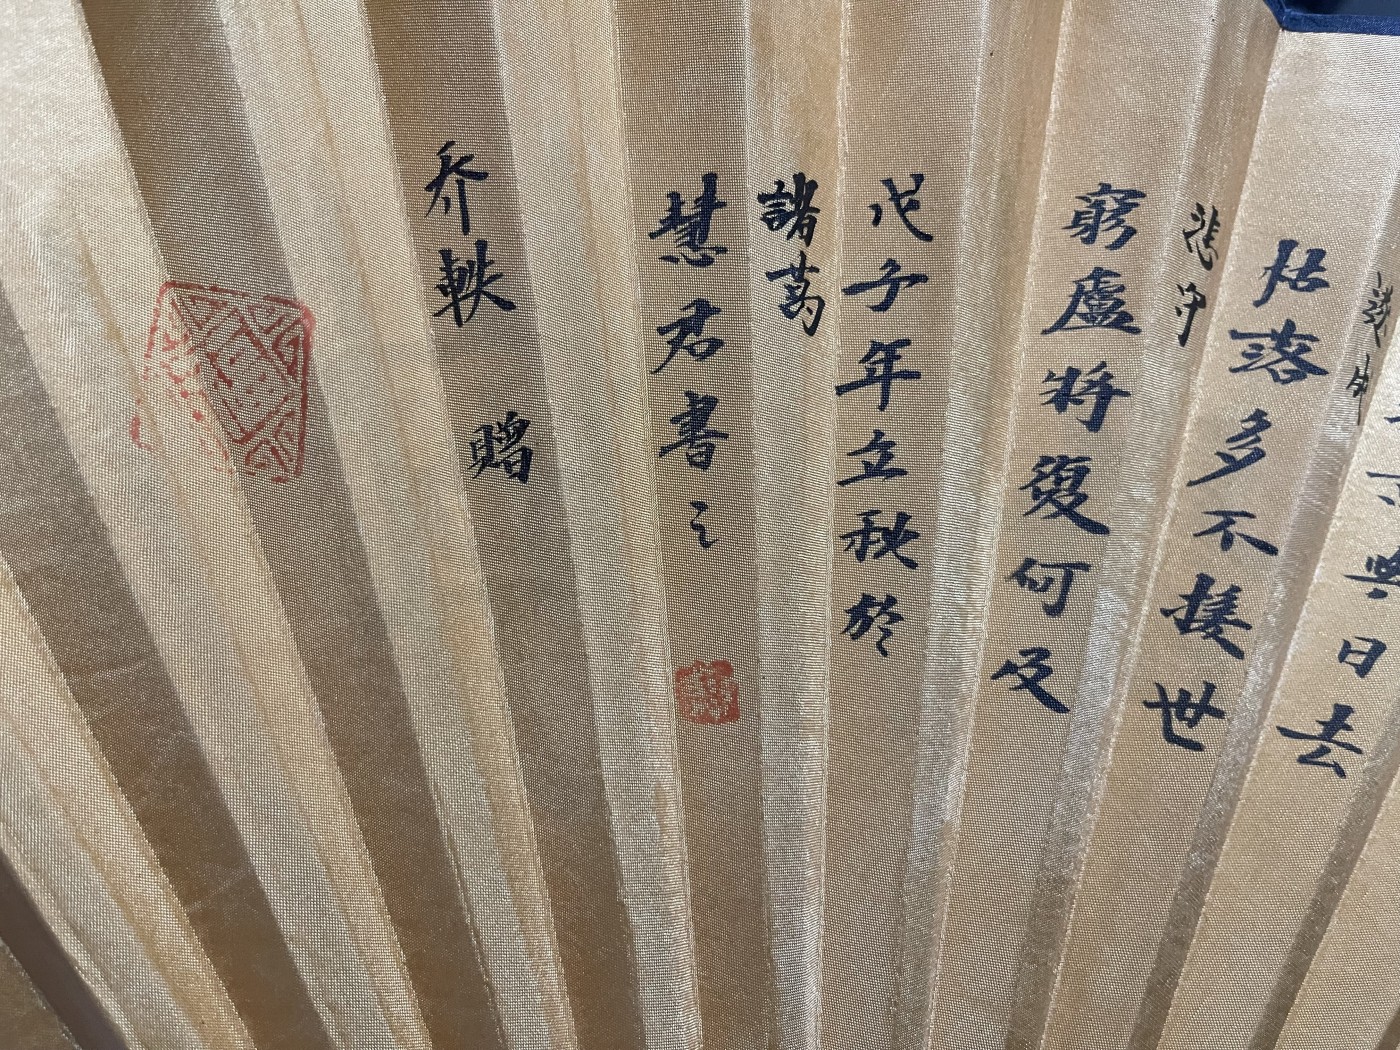 與日去
遂成
枯落多不接世
悲守
窮盧將復何及
戊子年立秋於
諸葛
慧君書之
乔軼 贈